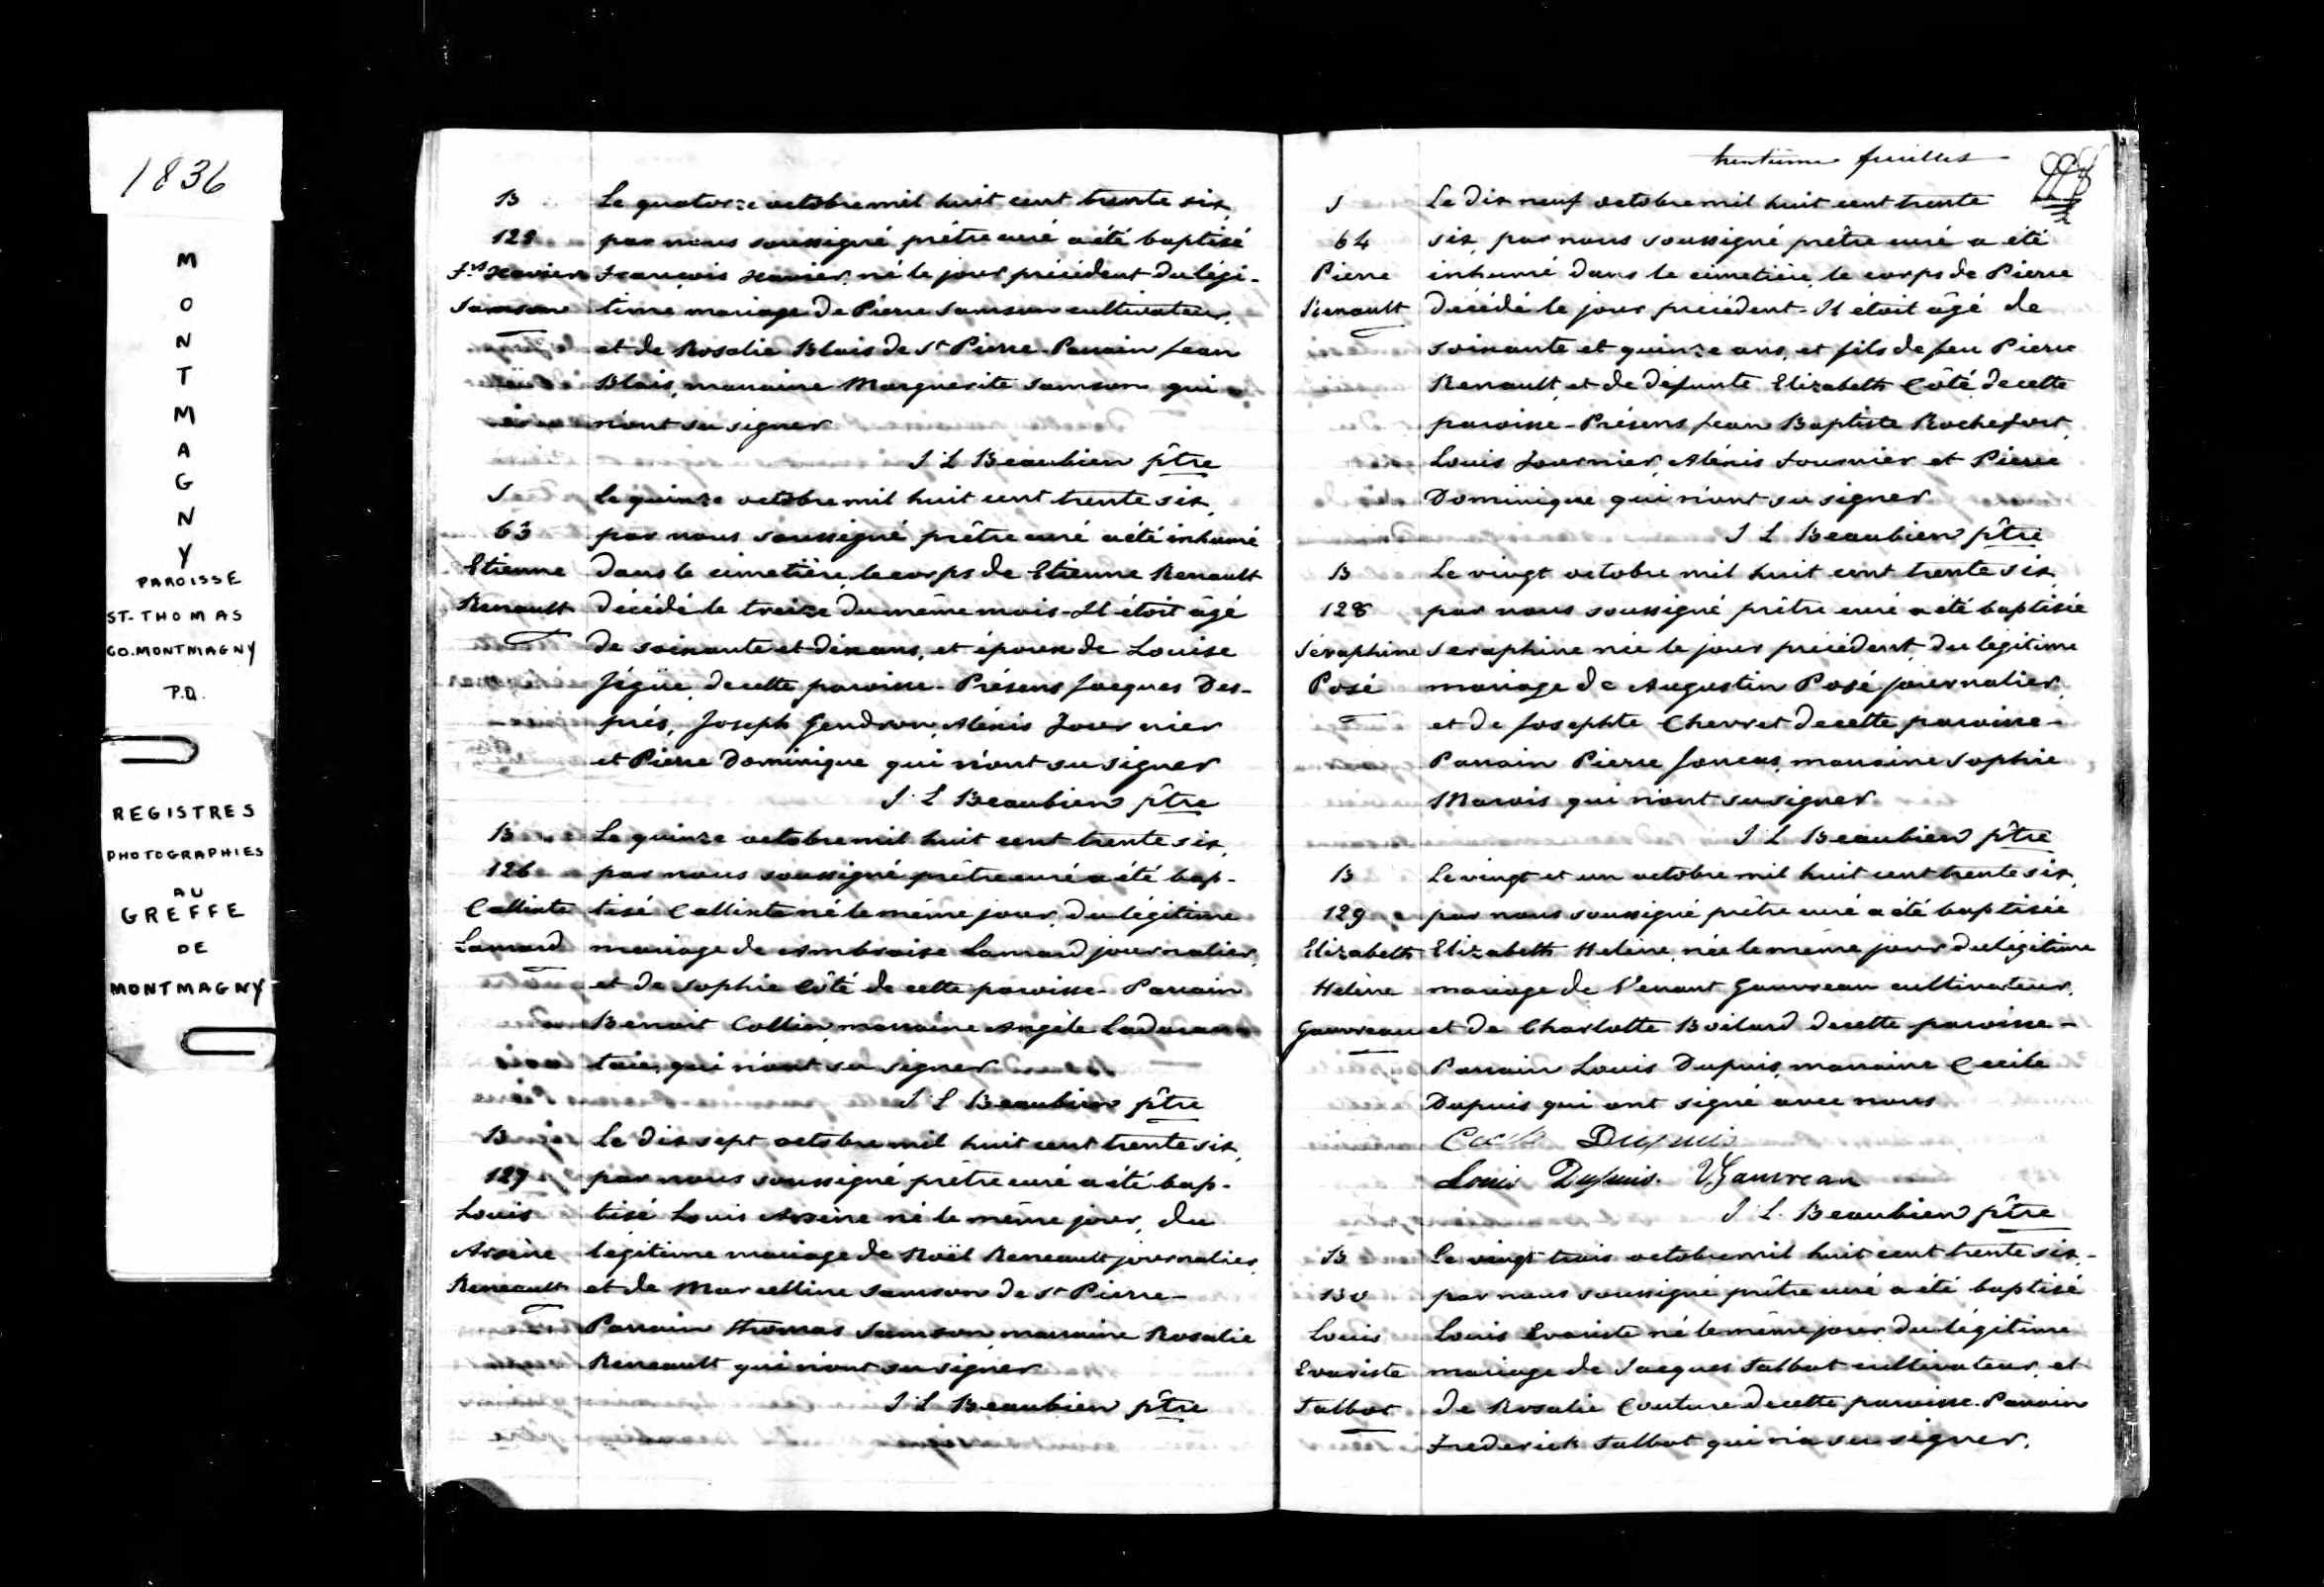 1836
MONTMAGNY
PAROISSE
ST-THOMAS
CO. MONTMAGNY
P.Q.
REGISTRES
PHOTOGRAPHIES
AU
GREFFE
DE
MONTMAGNY
B
Le quatorze octobre mil huit cent trente six,
par nous soussigné prêtre curé a été baptisé
Frs Xavier
François Xavier, né le jour précédent du légi-
Samson
time mariage de Pierre Samson cultivateur,
et de Rosalie Blais de St Pierre - Parrain Jean
Blais, marraine Marguerite Samson qui
n'ont su signer
J L Beaubien ptre
S
Le quinze octobre mil huit cent trente six,
63
par nous soussigné prêtre curé a été inhumé
Etienne
dans le cimetière, le corps de Etienne Renault
Renault
décédé le treize du même mois - Il étoit âgé
de soixante et dix ans, et époux de Louise
Jégüe, de cette paroisse - Présens Jacques Des-
prés, Joseph Gendron, Alexis Fournier
et Pierre Dominique qui n'ont su signer
J L Beaubien ptre
B
Le quinze octobre mil huit cent trente six,
126
par nous soussigné prêtre curé a été bap-
Callixte
tisé Callixte né le même jour, du légitime
Lamard
mariage de Ambroise Lamard journalier,
et de Sophie Côté de cette paroisse - Parrain
Benoit Collin, marraine Angèle Laduran-
taie, qui n'ont su signer
J L Beaubien ptre
B
Le dix sept octobre mil huit cent trente six,
127
par nous soussigné prêtre curé a été bap-
Louis
tisé Louis Arsène né le même jour, du
Arsène
légitime mariage de Noël Reneault journalier,
Reneault
et de Marcelline Samson de St Pierre -
Parrain Thomas Samson, marraine Rosalie
Reneault qui n'ont su signer
J L Beaubien ptre
trentième feuillet
S
Le dix neuf octobre mil huit cent trente
64
six, par nous soussigné prêtre curé a été
Pierre
inhumé dans le cimetière, le corps de Pierre
Renault
décédé le jour précédent - Il étoit âgé de
soixante et quinze ans, et fils de feu Pierre
Renault, et de défunte Elizabeth Côté, de cette
paroisse - Présens Jean Baptiste Rochefort,
Louis Fournier, Alexis Fournier et Pierre
Dominique qui n'ont su signer
J L Beaubien ptre
B
Le vingt octobre mil huit cent trente six,
128
par nous soussigné prêtre curé a été baptisée
Séraphine
Seraphine née le jour précédent, du légitime
Posé
mariage de Augustin Posé journalier,
et de Josephte Chevret de cette paroisse -
Parrain Pierre Joncas, marraine Sophie
Marois qui n'ont su signer
J L Beaubien ptre
B
Le vingt et un octobre mil huit cent trente six,
129
par nous soussigné prêtre curé a été baptisée
Elizabeth
Elizabeth Helène, née le même jour du légitime
Helène
mariage de Venant Gauvreau cultivateur,
Gauvreau
et de Charlotte Boilard de cette paroisse -
Parrain Louis Dupuis, marraine Cecile
Dupuis qui ont signé avec nous
Cecile Dupuis
Louis Dupuis. V Gauvreau
J L. Beaubien ptre
B
Le vingt trois octobre mil huit cent trente six,
130
par nous soussigné prêtre curé a été baptisé
Louis
Louis Evariste né le même jour, du légitime
Evariste
mariage de Jacques Talbot cultivateur, et
Talbot
de Rosalie Couture de cette paroisse. Parrain
Frederick Talbot qui n'a su signer.